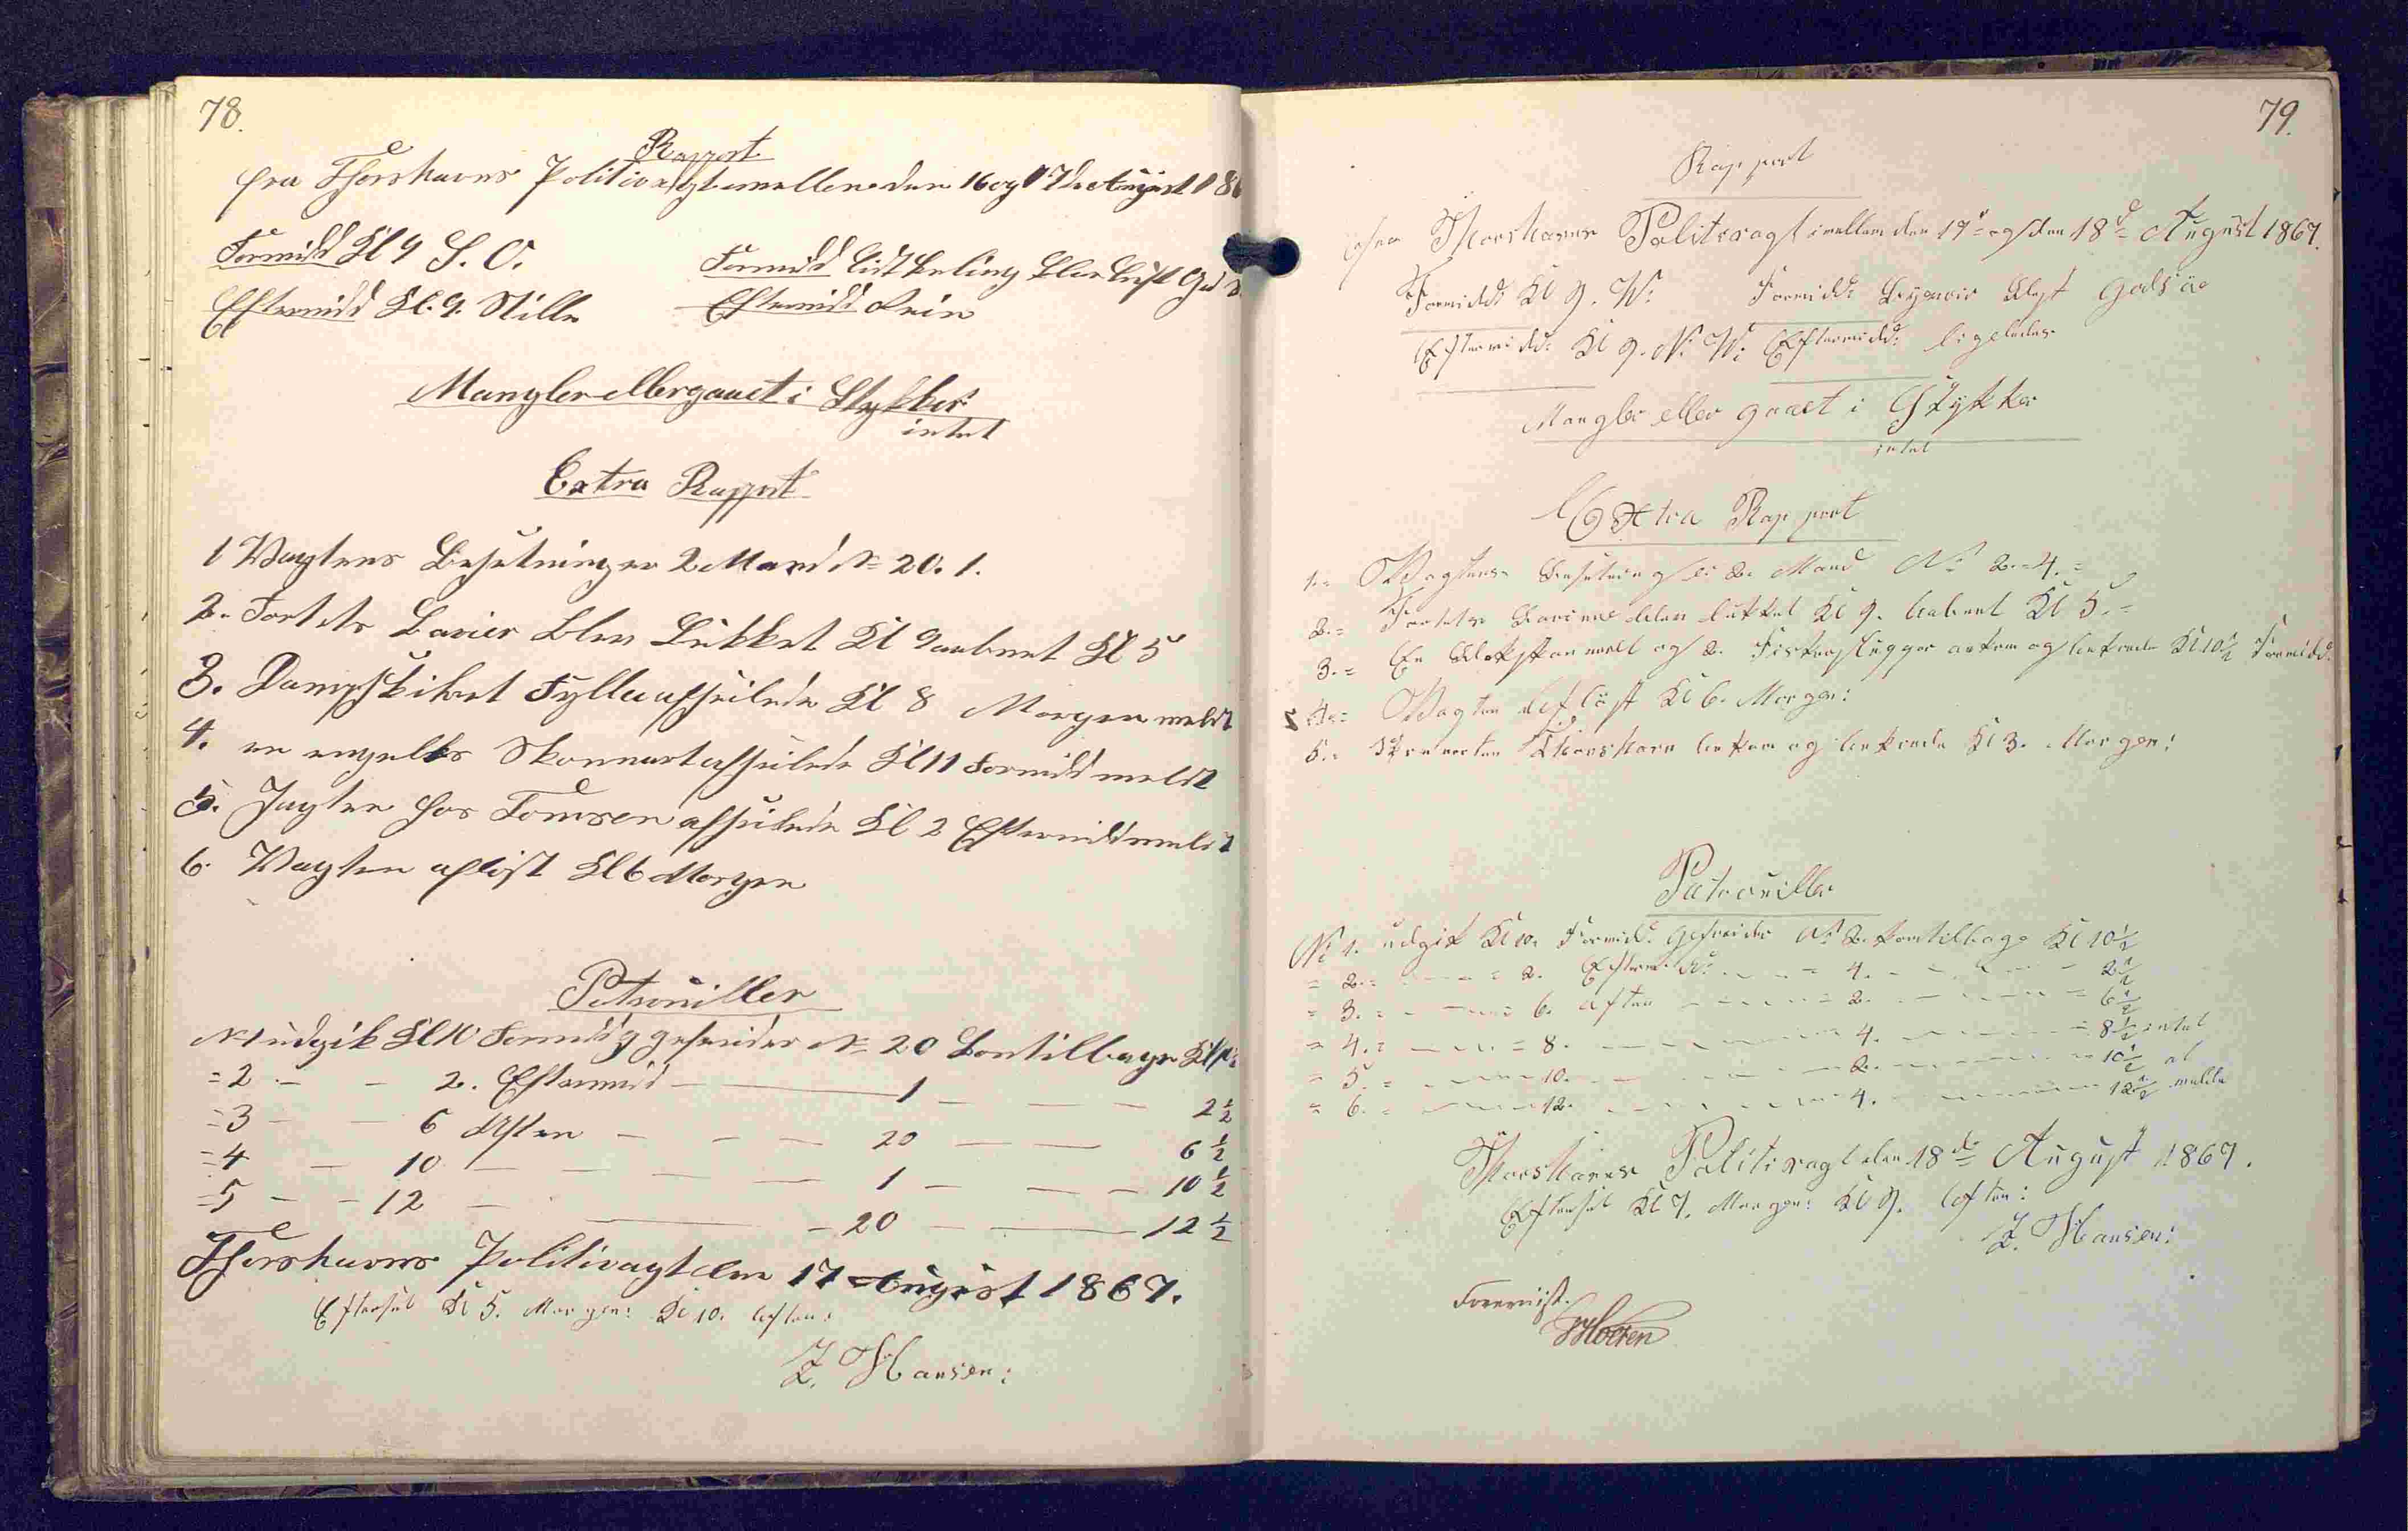 78.
Rapport
fra Thorshavns Politivagt imellem den 16 og 17de August 186
Formidd Kl 9 S. O.
Formidd lidt kuling klar luft God
Eftermidd Kl. 9. Stille
Eftermidd Sein
Mangler eller gaaet i Stykker
intet
Extra Rapport
1 Vagtens Besetninger 2 Mand No 20. 1.
2. Fortets Barier blev Lukket Kl 9 aabnet Kl 5
3. Dampskibet Fylla afseilede Kl 8 Morgen meldt
4. en engelsk Skonnert afseilede Kl 11 Formidd meldt
5. Jagten hos Tomsen afseilede Kl 2 Eftermidd meldt
6. Vagten aflöst Kl 6 Morgen
Patrouiller
No 1 udgik Kl 10 Formidd gefreider No 20 kom tilbage Kl
= 2 - - 2. Eftermid - 1 - - - 2 1/2
= 3 - - 6 Aften - - - 20 - - 6 1/2
= 4 - 10 - - - - 1 - - - 10 1/2
= 5 - - 12 - - - 20 - - 12 1/2
Thorshavns Politivagt den 17 August 1867.
Efterset Kl 5. Morgen: Kl 10. Aften:
Z. Hansen:
79.
Rapport
fra Thorshavns Politivagt imellem den 17de og den 18de August 1867.
Formidd: Kl 9. W: Formidd: Luft God
Eftermidd: Kl 9. N: W: Eftermidd: ligeledes
Mangler eller gaaet i Stykker
intet
Extra Rapport
1. = Vagtens Besetning er 2. Mand No 2. = 4. =
2. = Fortets Bariere blev lukket Kl 9. aabnet Kl 5. =
3. = En og 2. Fiskerslupper ankom og ankrede Kl 10 1/2 Formidd:
4. = Vagten aflöst Kl 6. Morgen:
5. = Skonnerten Thorshavn ankom og ankrede Kl 3. Morgen:
Patrouiller
No 1. udgik Kl 10. Formidd: Gefreider No 2. kom tilbage Kl 10 1/2
= 2. = - - = 2. Eftermidd: - - = 4. - - - - 2 1/2
= 3. = - - = 6. Aften - - - = 2. - - - = 6 1/2
= 4. = - - = 8. - - - - 4. - - - = 8 1/2 intet
= 5. = - - 10. - - - - 2. - - - = 10 1/2 at
= 6. = - - 12. - - - - 4. - - - 12 1/2 melde
Thorshavns Politivagt den 18de August 1867.
Efterset Kl 7. Morgen: Kl 9. Aften:
Z. Hansen:
Forevist.